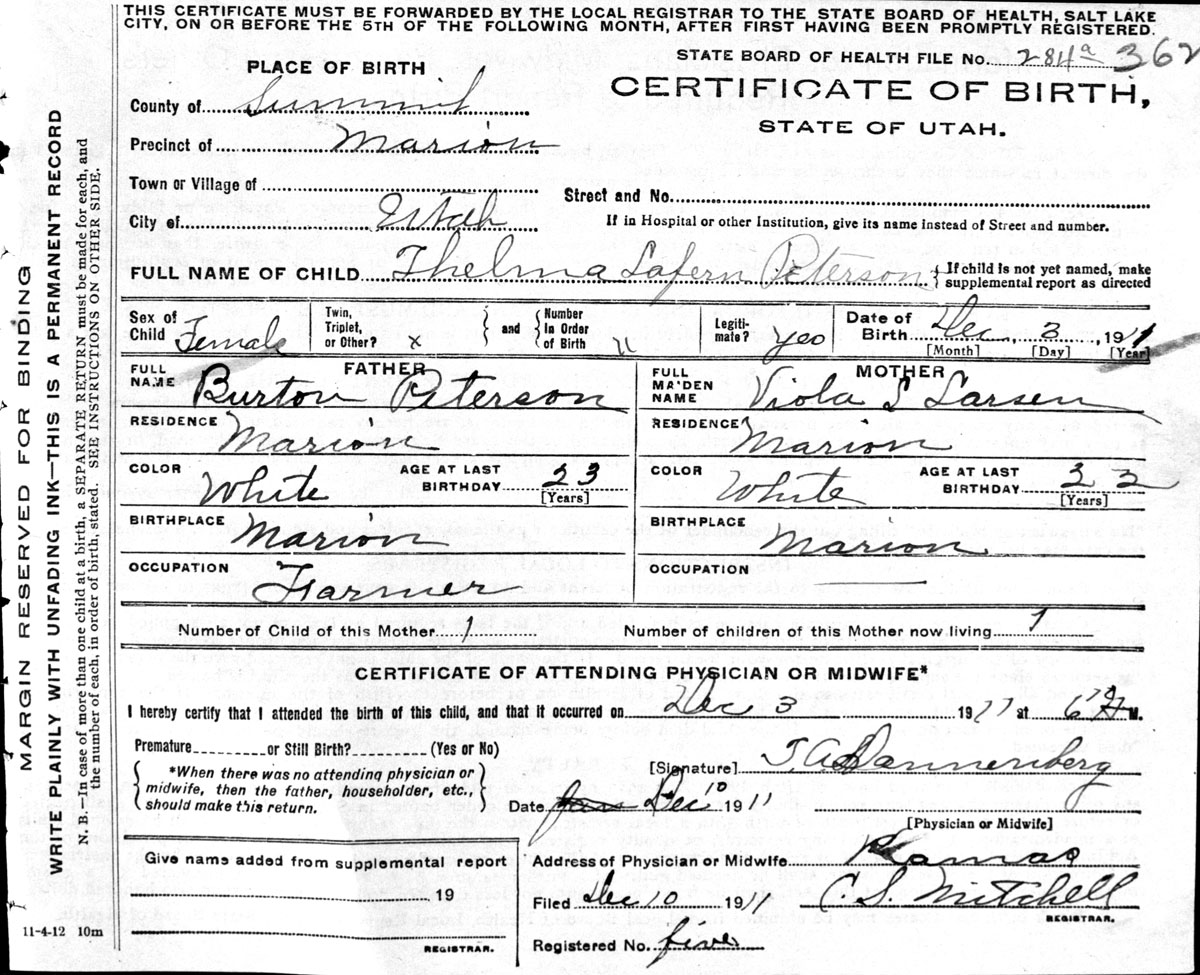 THIS CERTIFICATE MUST BE FORWARDED BY THE LOCAL REGISTRAR TO THE STATE BOARD OF HEALTH, SALT LAKE
CITY, ON OR BEFORE THE 5TH OF THE FOLLOWING MONTH, AFTER FIRST HAVING BEEN PROMPTLY REGISTERED.
STATE BOARD OF HEALTH FILE No. 284a 362
PLACE OF BIRTH
CERTIFICATE OF BIRTH,
STATE OF UTAH.
County of Summit
Precinct of Marion
Town or Village of
Street and No.
City of Utah
If in Hospital or other Institution, give its name instead of Street and number.
FULL NAME OF CHILD Thelma Lafern Peterson
If child is not yet named, make
supplemental report as directed
Sex of Child Female
Twin, Triplet, or Other? x
and Number In Order of Birth
Legiti- mate? yes
Date of Birth Dec, 3, 1911
[Month] [Day] [Year]
FATHER
FULL NAME Burton Peterson
RESIDENCE Marion
COLOR White AGE AT LAST BIRTHDAY 23
[Years]
BIRTHPLACE Marion
OCCUPATION Farmer
MOTHER
FULL MAIDEN NAME Viola S Larsen
RESIDENCE Marion
COLOR White AGE AT LAST BIRTHDAY 22
[Years]
BIRTHPLACE Marion
OCCUPATION
Number of Child of this Mother 1 Number of children of this Mother now living 1
CERTIFICATE OF ATTENDING PHYSICIAN OR MIDWIFE*
I hereby certify that I attended the birth of this child, and that it occurred on Dec 3 1911 at 6 M.
Premature or Still Birth? (Yes or No)
*When there was no attending physician or
midwife, then the father, householder, etc.,
should make this return.
[Signature] T.A. Dannenberg
Date Dec 10 1911
[Physician or Midwife]
Give name added from supplemental report
19
REGISTRAR.
Address of Physician or Midwife Kamas
Filed Dec 10 1911 C. S. Mitchell
REGISTRAR.
Registered No. five
11-4-12 10m
MARGIN RESERVED FOR BINDING
WRITE PLAINLY WITH UNFADING INK—THIS IS A PERMANENT RECORD
N. B.—In case of more than one child at a birth, a SEPARATE RETURN must be made for each, and
the number of each, in order of birth, stated. SEE INSTRUCTIONS ON OTHER SIDE.